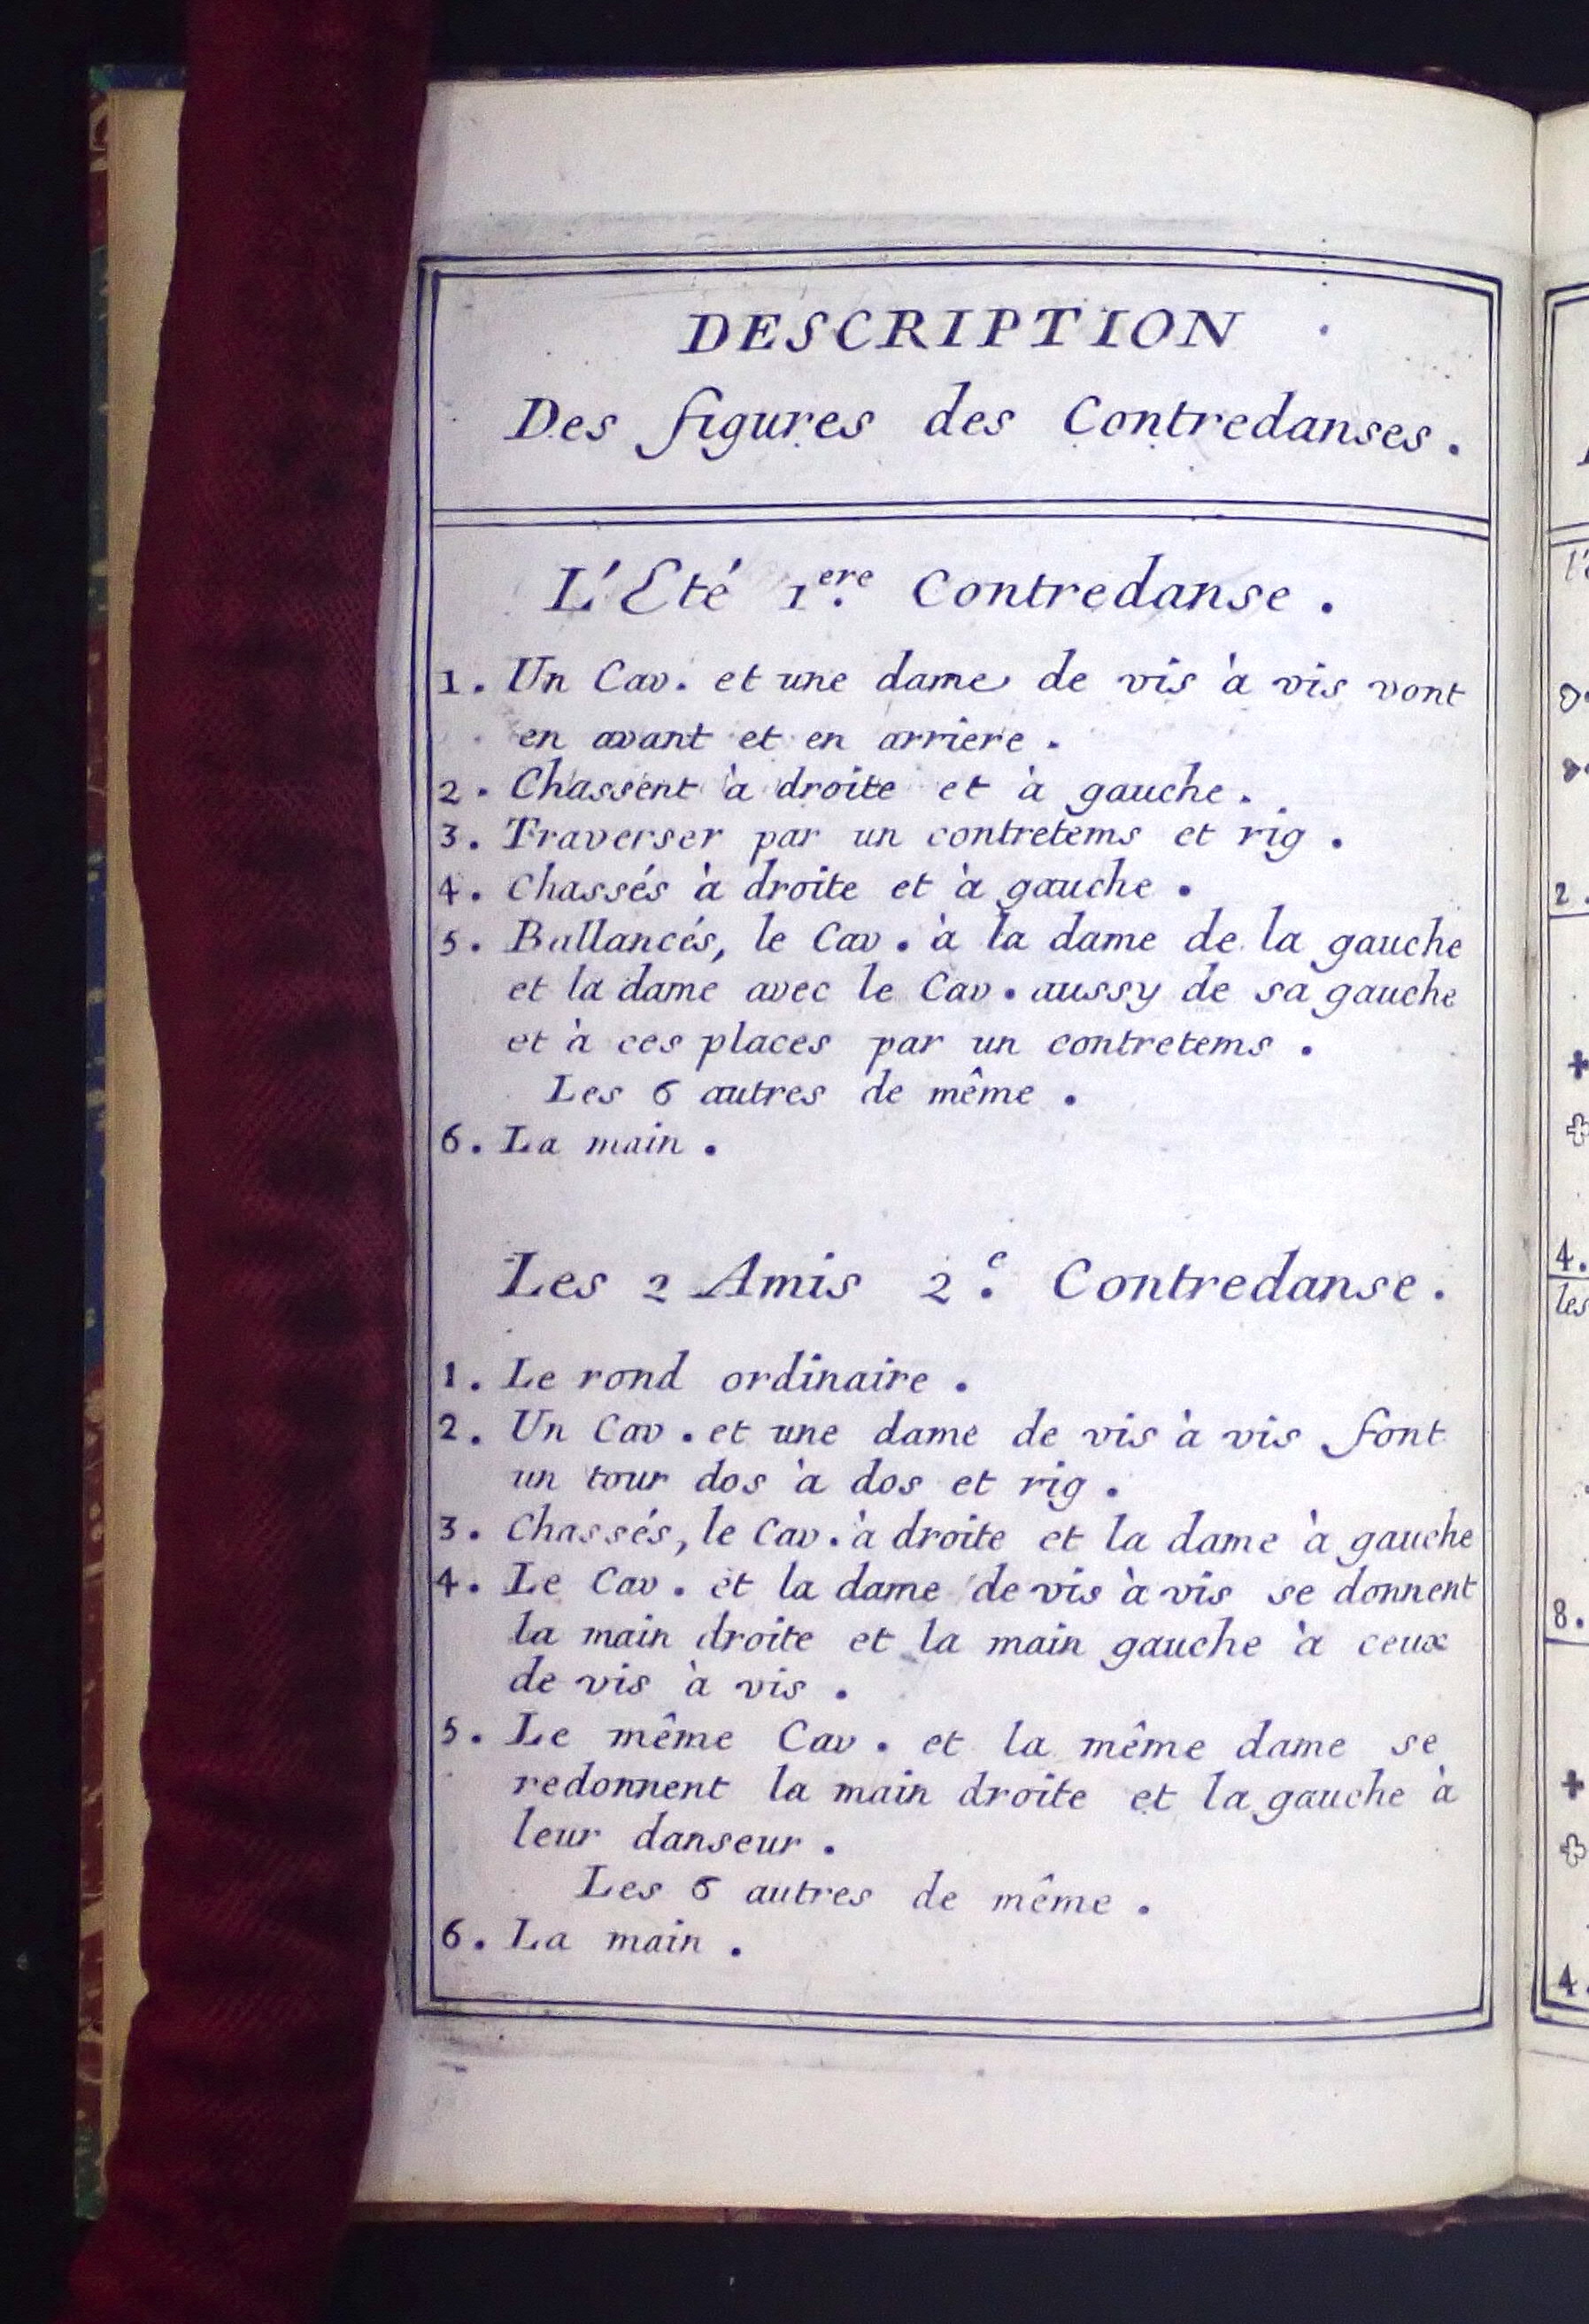 DESCRIPTION
Des figures des Contredanses.
L'Eté 1ere Contredanse.
1. Un Cav. et une dame de vis à vis vont
en avant et en arriere.
2. Chassent à droite et à gauche.
3. Traverser par un contretems et rig.
4. Chassés à droite et à gauche.
5. Ballancés, le Cav. à la dame de la gauche
et la dame avec le Cav. aussy de sa gauche
et à ces places par un contretems.
Les 6 autres de même.
6. La main.
Les 2 Amis 2e. Contredanse.
1. Le rond ordinaire.
2. Un Cav. et une dame de vis à vis font
un tour dos à dos et rig.
3. Chassés, le Cav. à droite et la dame à gauche
4. Le Cav. et la dame de vis à vis se donnent
la main droite et la main gauche à ceux
de vis à vis.
5. Le même Cav. et la même dame se
redonnent la main droite et la gauche à
leur danseur.
Les 6 autres de même.
6. La main.
2.
4.
les
8.
4.